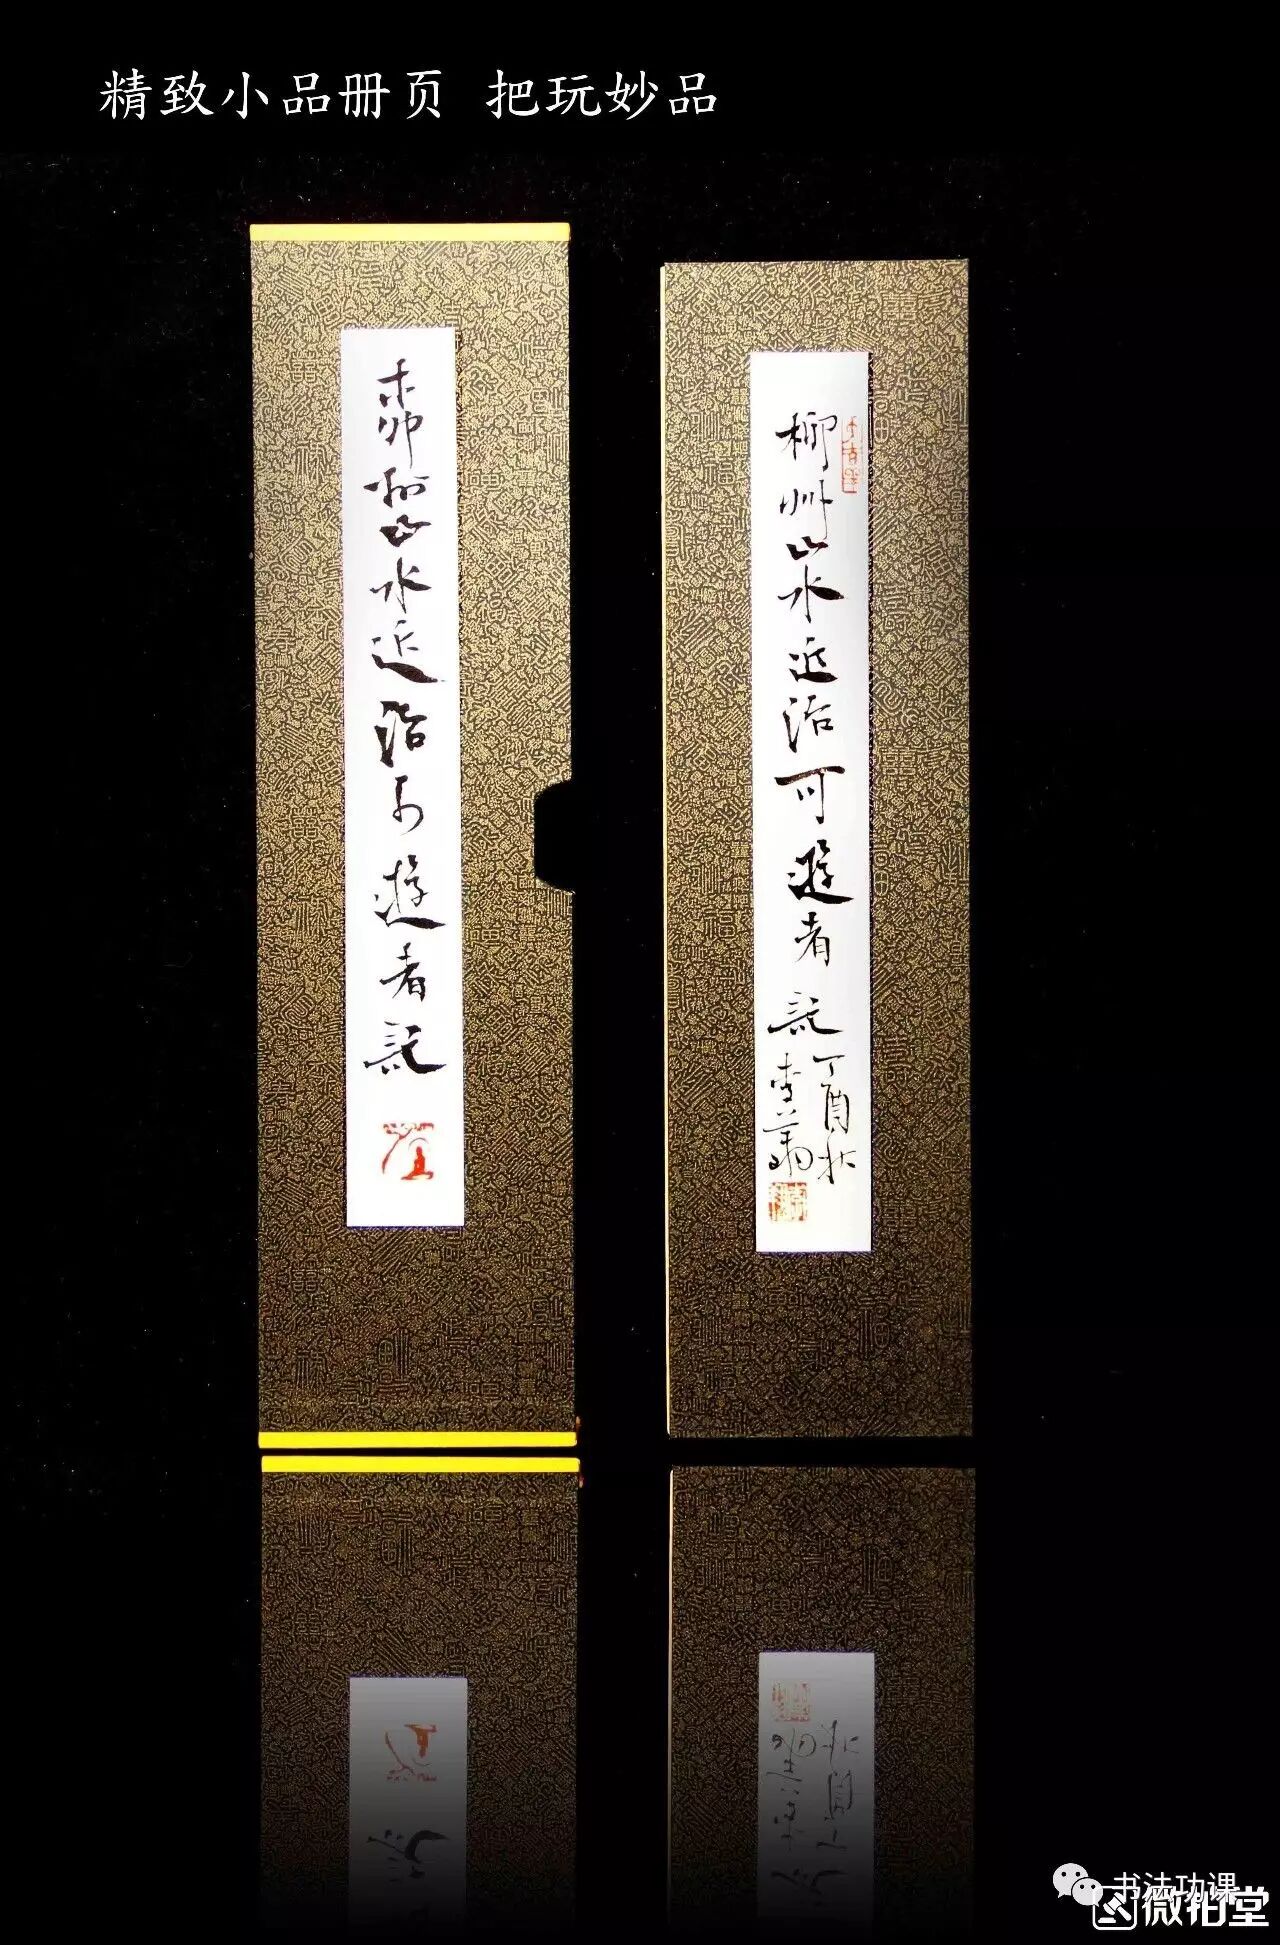 精致小品册页 把玩妙品
柳州山水近治可遊者記
柳州山水近治可遊者記
丁酉秋
书法功课
微拍堂